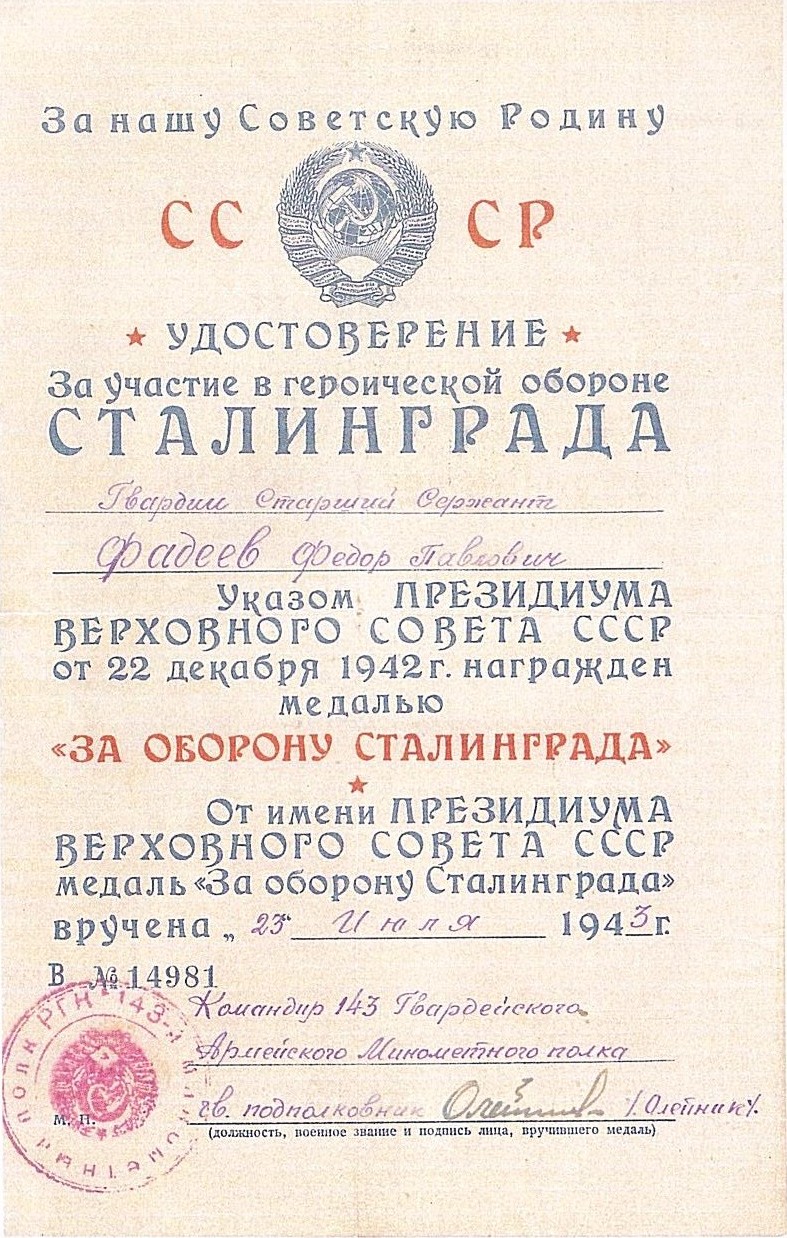 За нашу Советскую Родину
СС СР
УДОСТОВЕРЕНИЕ
За участие в героической обороне
СТАЛИНГРАДА
Гвардии Старший Сержант
Фадеев Федор Павлович
Указом ПРЕЗИДИУМА
ВЕРХОВНОГО СОВЕТА СССР
от 22 декабря 1942 г. награжден
медалью
«ЗА ОБОРОНУ СТАЛИНГРАДА»
От имени ПРЕЗИДИУМА
ВЕРХОВНОГО СОВЕТА СССР
медаль «За оборону Сталинграда»
вручена „23“ Июля 1943 г.
В № 14981
Командир 143 Гвардейского
Армейского Минометного полка
гв. подполковник Олейник /Олейник/.
М. П.
(должность, военное звание и подпись лица, вручившего медаль)